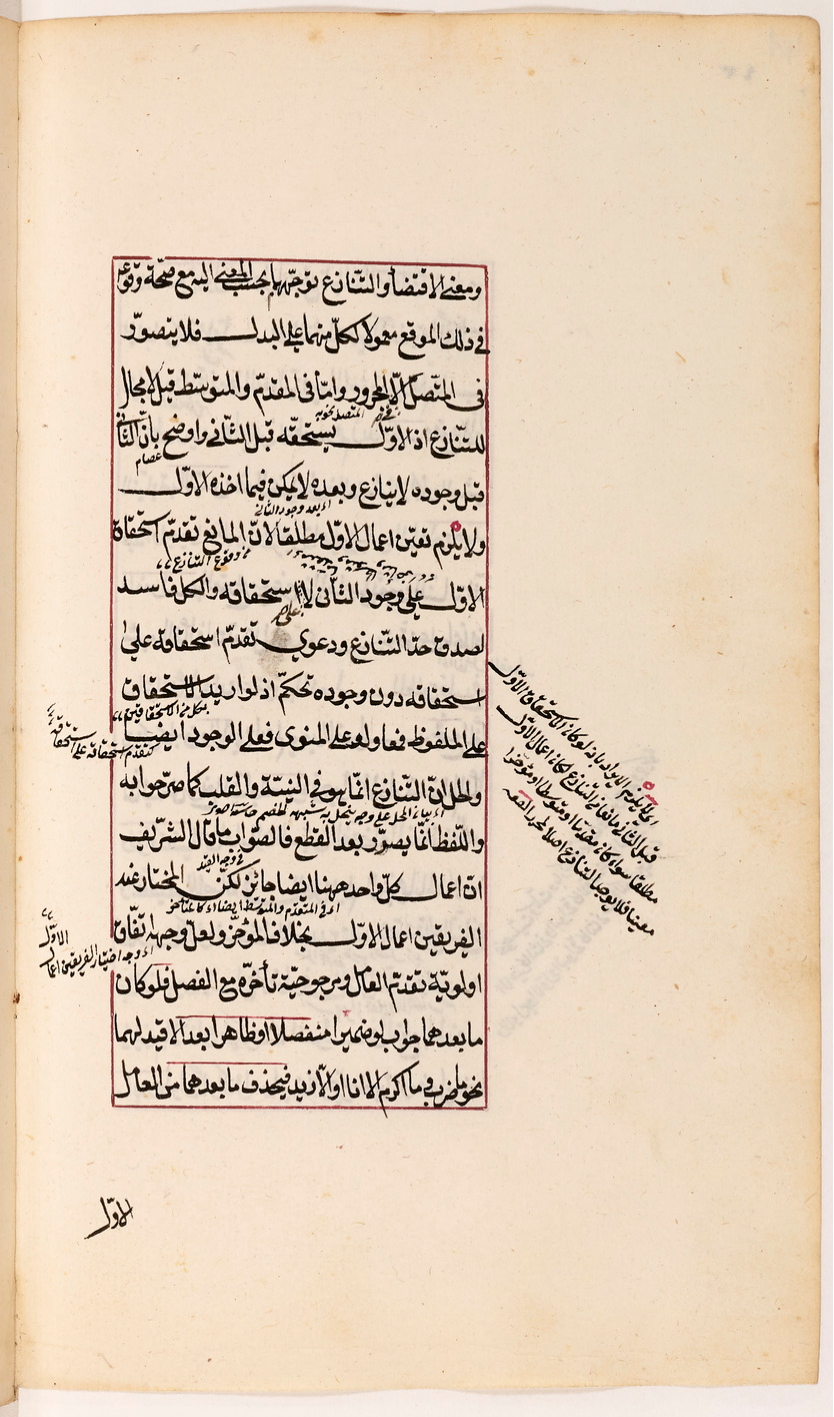 ومعنى الاقتضاء والتّنازع توجّههما بحسب المعنى اليه مع صحّة وقوعه
فى ذلك الموقع معمولا لكلّ منهما على البدل فلا يتصوّر
فى المتّصل الّا المجرور وامّا فى المقدّم والمتوسّط قيل لا مجال
للتّنازع اذ الاوّل يستحقّه قبل الثّانى واوضح بانّ الثّانى
عصام
قبل وجوده لا ينازع وبعده لا يمكن فيما اخذه الاوّل
اى بعد وجود الثانى
ولا يلزم تعيّن اعمال الاوّل مطلقا لانّ المانع تقدّم استحقاق
من وقوع التنازع
الاوّل على وجود الثّانى لا استحقاقه والكل فاسد
لصدق حدّ التّنازع ودعوى تقدّم استحقاقه على
استحقاقه دون وجوده تحكّم اذ لو اريد الاستحقاق
على الملفوظ فعا ولو على المنوى فعلى الوجود ايضا
كتقدم استحقاقه على استحقاقه
والحل انّ التّنازع انّما هو فى النيّة والقلب كما صرّحوا به
واللّفظ انّما يصوّر بعد القطع فالصّواب ما قال الشّريف
فى وجه القيد
انّ اعمال كلّ واحد ههنا ايضا جائز لكنّ المختار عند
اى فى المتقدّم والمتوسّط ايضا
الفريقين اعمال الاوّل بخلاف المؤخّر ولعلّ وجهه اتّفاق
اى وجه اختيار الفريقين اعمال الاوّل
اولويّة تقدّم العامل ومرجوحيّة تأخّره مع الفصل فلو كان
ما بعدهما جواب لو ضميرا منفصلا او ظاهرا بعد الّا قيد لهما
نحو ما ضرب وما اكرم الا انا او الّا زيد فيحذف ما بعدهما من العامل
اى لا يلزم الايراد بانه لو كان الاستحقاق الاوّل
قبل الثّانى مانعا فى التنازع لكان اعمال الاوّل
مطلقا سواء كان مقدما او متوسطا او مؤخرا
معينا فلا يوجد التنازع اصلا
الاوّل